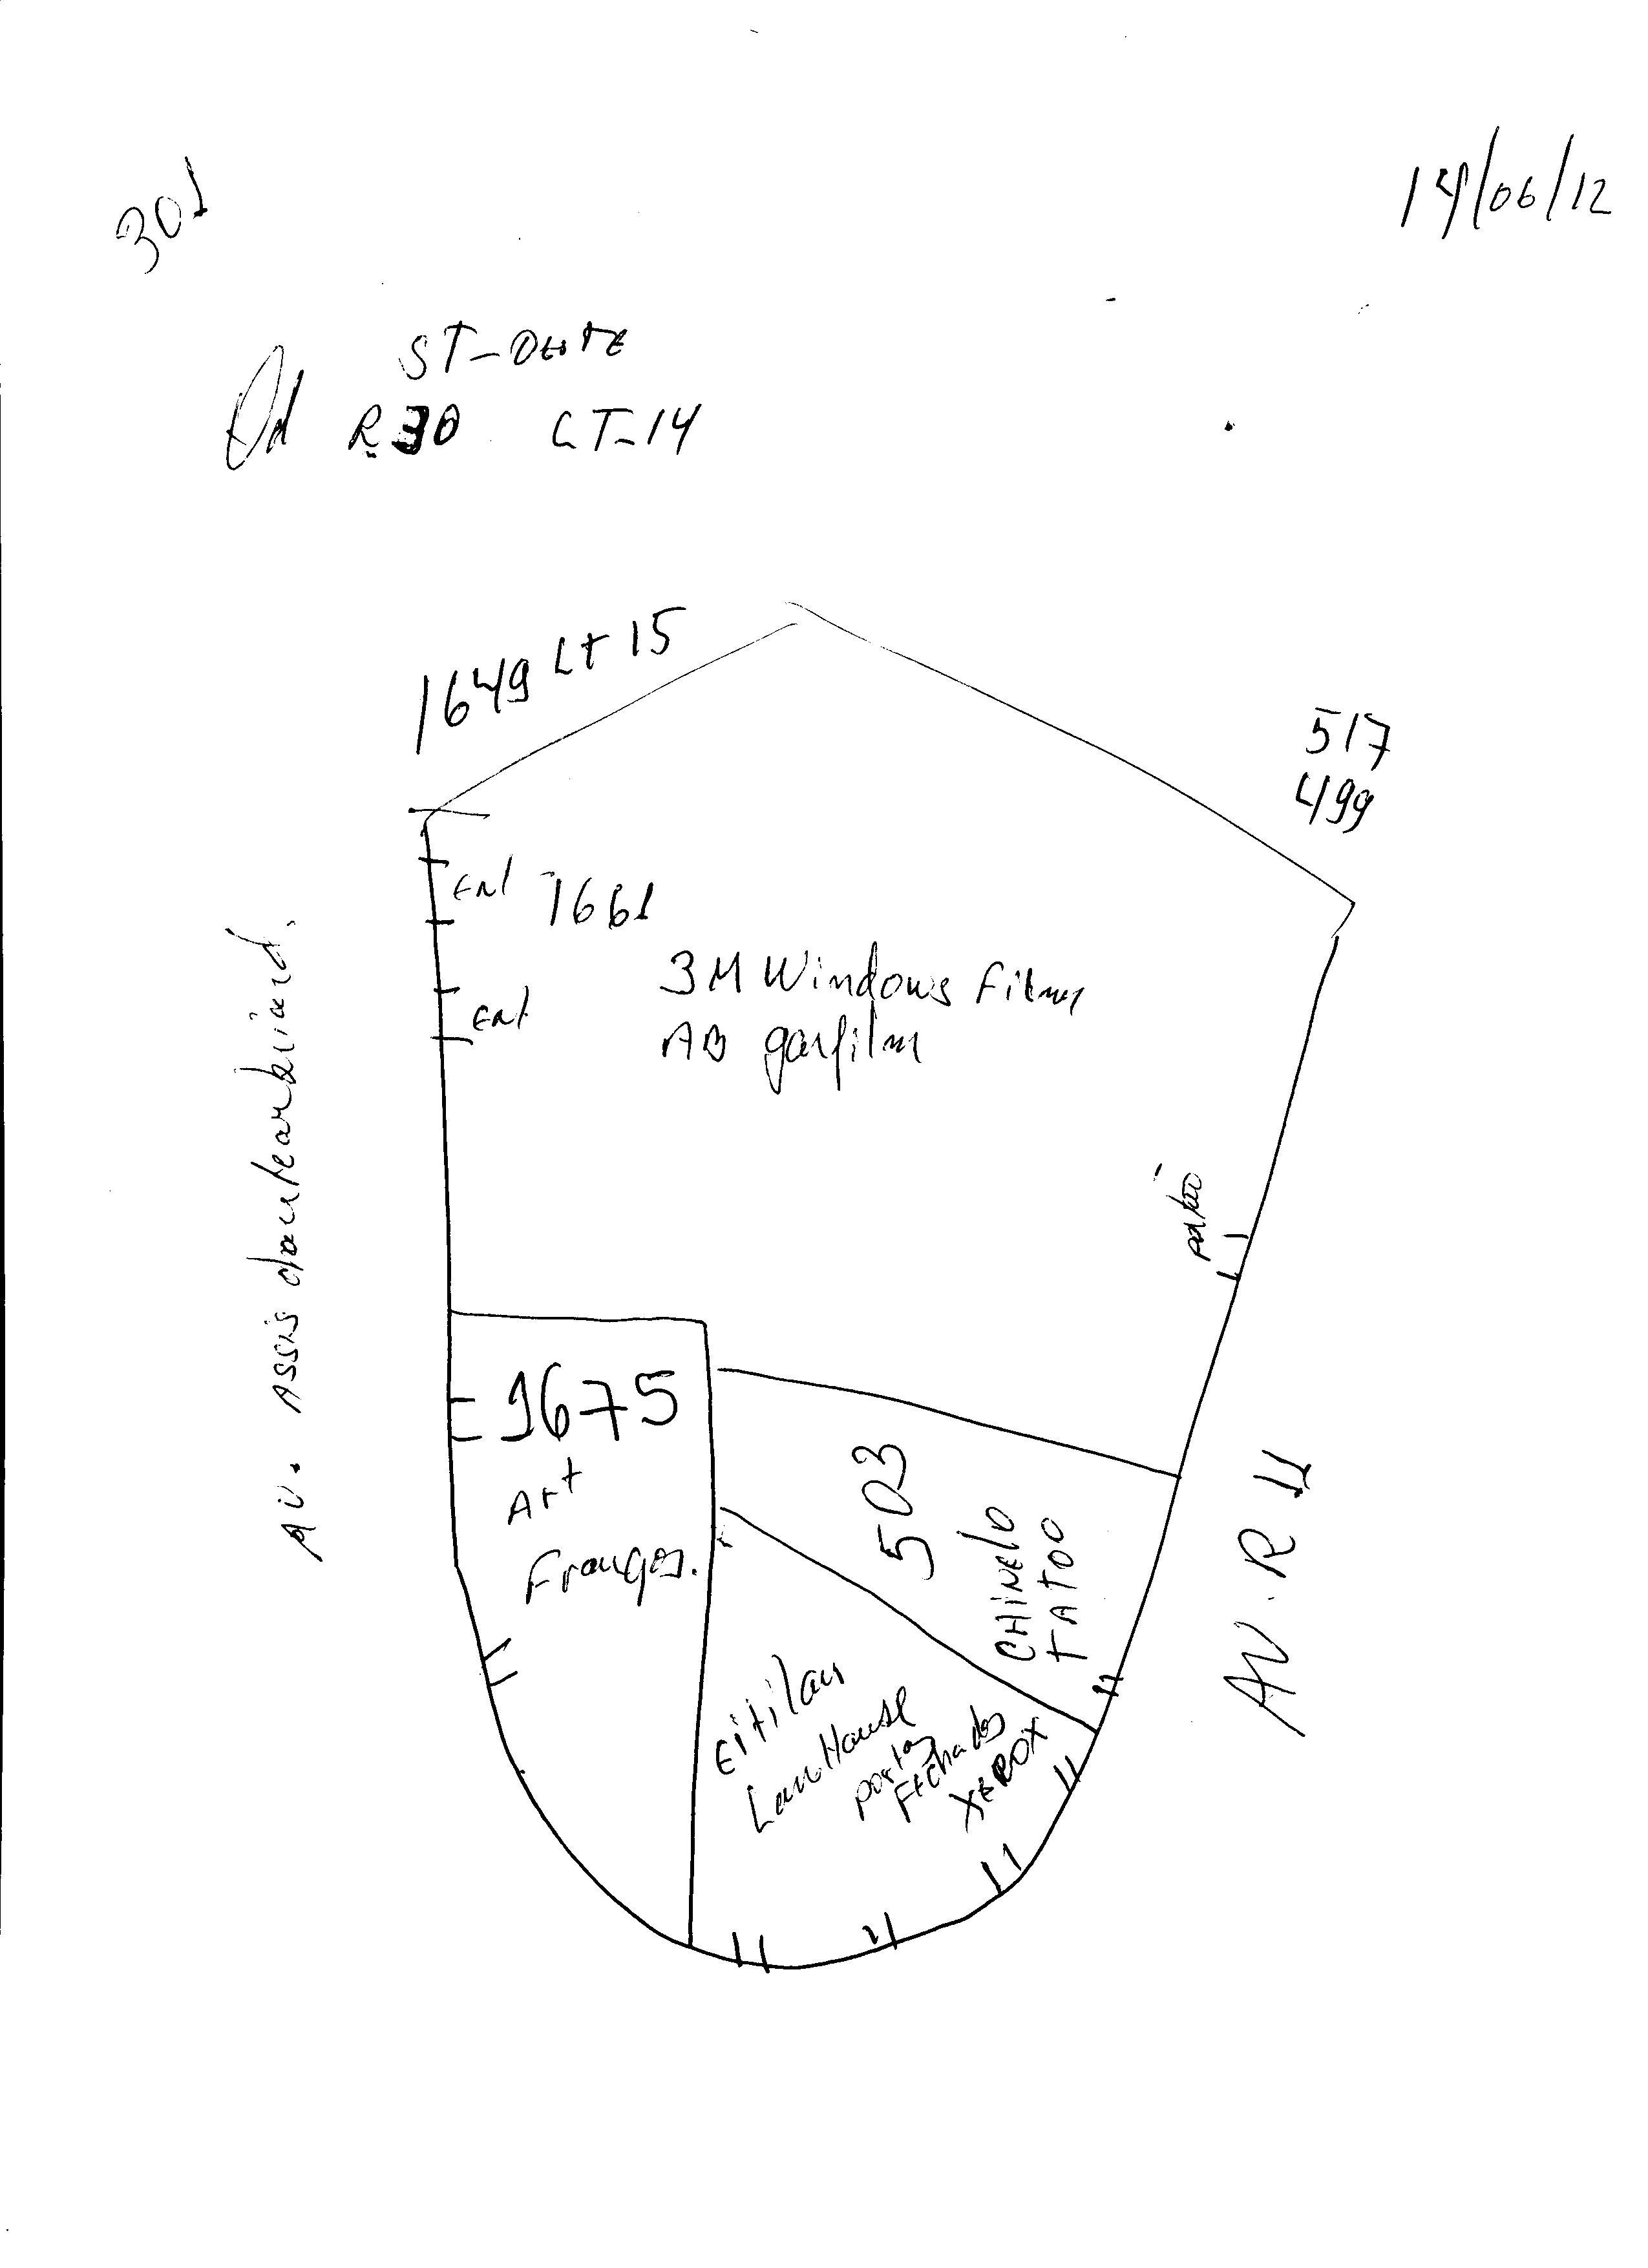 301
14/06/12
ST-OESTE
Qd R30 LT-14
1649 Lt 15
517
499
Ent 1661
Ent
3M Windows Films
AB garfilm
Av. Assis
1675
Art
Frangos.
503
CHINELO
TATOO
AV. R 11
Lan House
portas
Fechadas
XEROX